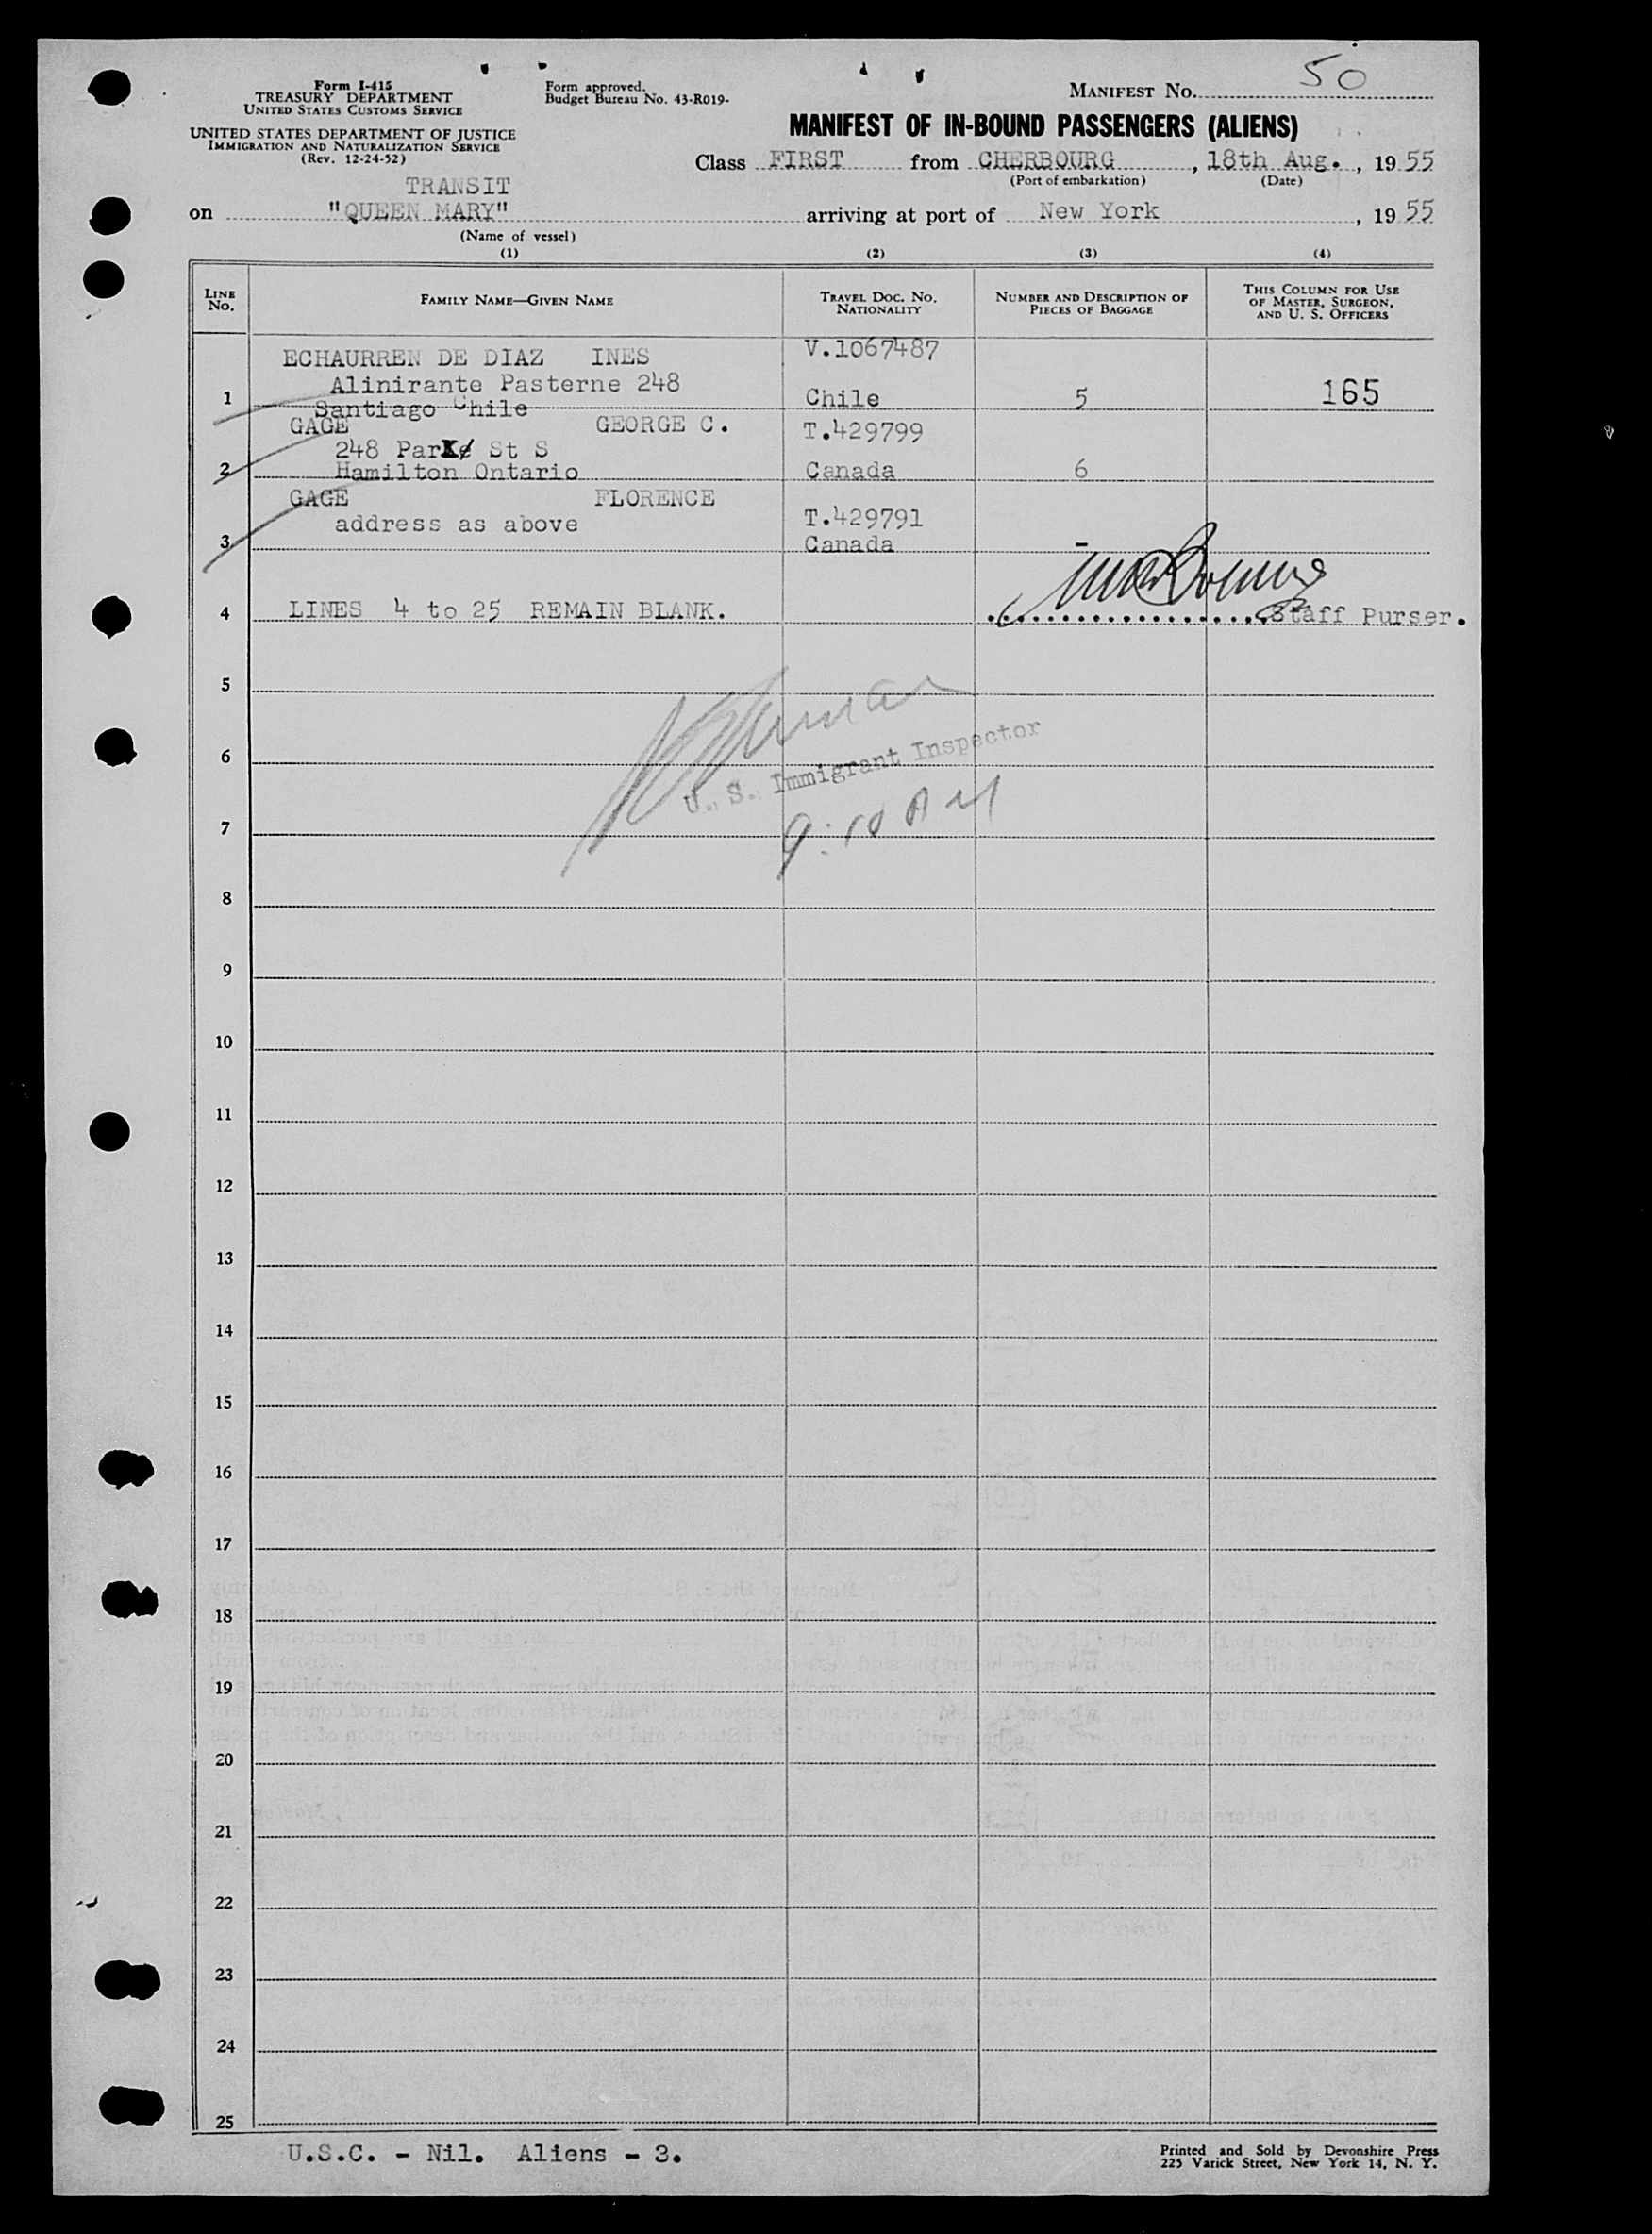 Form I-415
TREASURY DEPARTMENT
UNITED STATES CUSTOMS SERVICE
UNITED STATES DEPARTMENT OF JUSTICE
IMMIGRATION AND NATURALIZATION SERVICE
(Rev. 12-24-52)
Form approved.
Budget Bureau No. 43-R019-
MANIFEST NO. 50
MANIFEST OF IN-BOUND PASSENGERS (ALIENS)
Class FIRST from CHERBOURG, 18th Aug., 1955
(Port of embarkation) (Date)
TRANSIT
on "QUEEN MARY" arriving at port of New York, 1955
(Name of vessel)
(1) (2) (3) (4)
LINE NO. FAMILY NAME—GIVEN NAME TRAVEL DOC. NO. NATIONALITY NUMBER AND DESCRIPTION OF PIECES OF BAGGAGE THIS COLUMN FOR USE OF MASTER, SURGEON, AND U. S. OFFICERS
ECHAURREN DE DIAZ INES V.1067487
Alinirante Pasterne 248
1 Santiago Chile Chile 5 165
GAGE GEORGE C. T.429799
248 Park St S
2 Hamilton Ontario Canada 6
GAGE FLORENCE
address as above T.429791
3 Canada -
4 LINES 4 to 25 REMAIN BLANK. Staff Purser.
5
6 U. S. Immigrant Inspector
7 9:10 AM
8
9
10
11
12
13
14
15
16
17
18
19
20
21
22
23
24
25
U.S.C. - Nil. Aliens - 3.
Printed and Sold by Devonshire Press
225 Varick Street, New York 14, N. Y.